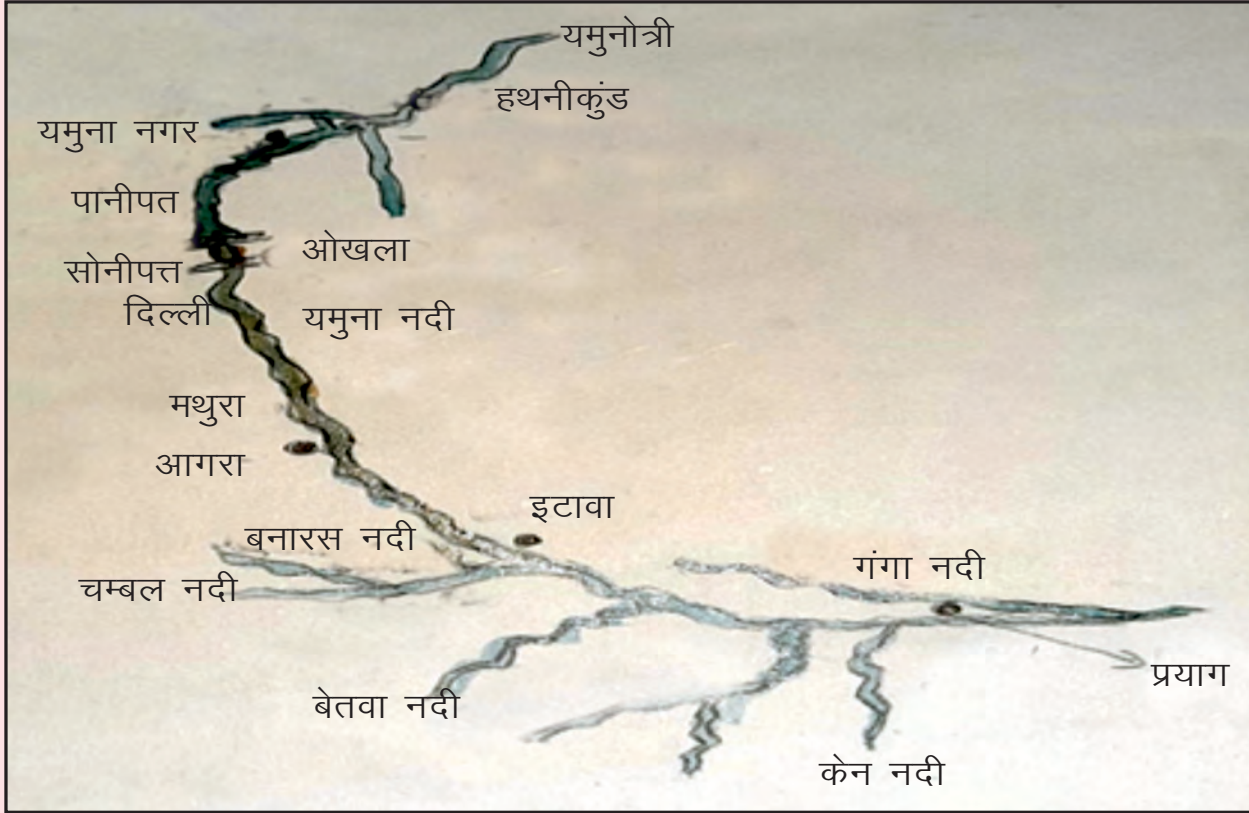 यमुनोत्री
हथनीकुंड
यमुना नगर
पानीपत
ओखला
सोनीपत्त
दिल्ली
यमुना नदी
मथुरा
आगरा
इटावा
बनारस नदी
गंगा नदी
चम्बल नदी
प्रयाग
बेतवा नदी
केन नदी